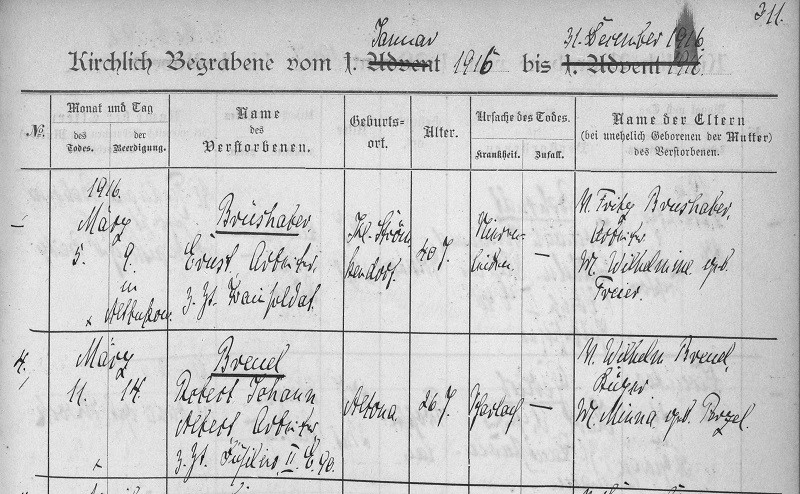 311.
Januar 31. December 1916.
Kirchlich Begrabene vom 1. Advent 1916 bis 1. Advent 191
№.
Monat und Tag
des Todes.
der Beerdigung.
Name
des
Verstorbenen.
Geburts-
ort.
Alter.
Ursache des Todes.
Krankheit.
Zufall.
Name der Eltern
(bei unehelich Geborenen der Mutter)
des Verstorbenen.
1916.
März
5. 9.
in
Altbukow.
Brüshaber
Ernst Arbeiter,
z. Zt. Trainsoldat.
Kl. Ström
kendorf.
40 J.
Nieren-
leiden.
—
V. Fritz Brüshaber,
Arbeiter
M. Wilhelmine geb.
Freier.
4.
März
11. 14.
Breuel
Robert Johann
Albert Arbeiter
z. Zt. Füsilier II E. 90.
Altona
26 J.
Scharlach
—
V. Wilhelm Breuel,
M. Minna geb.